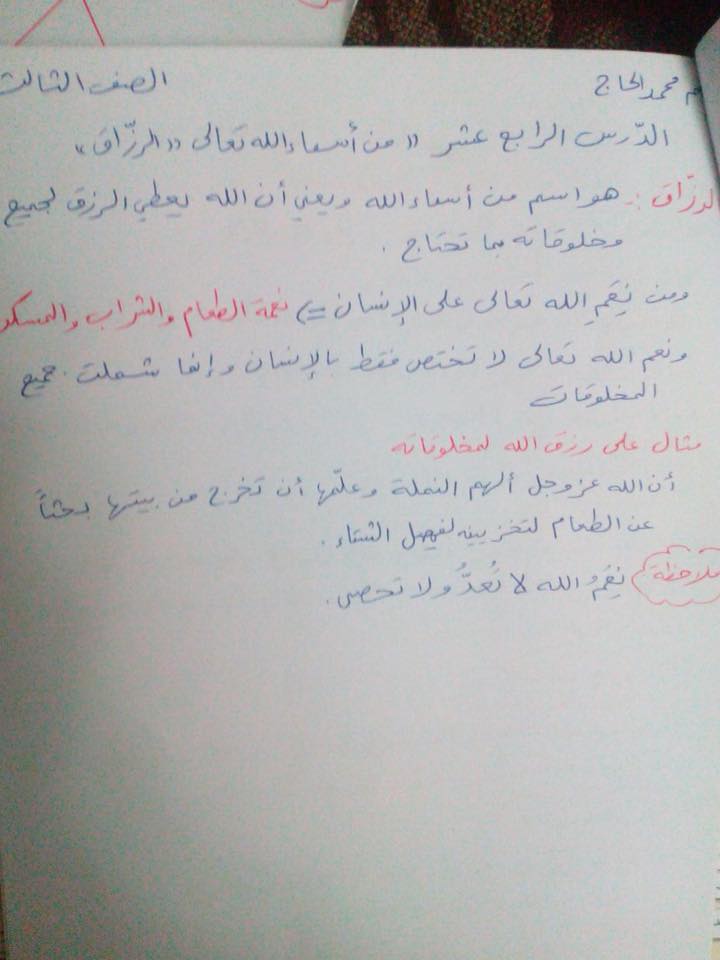 م محمد الحاج الصف الثالث
الدّرس الرابع عشر "من أسماء الله تعالى "الرزّاق"
الرزّاق :- هو اسم من أسماء الله ويعني أن الله يعطي الرزق لجميع
مخلوقاته بما تحتاج .
ومن نِعَمِ الله تعالى على الإنسان => نعمة الطعام والشراب والمسكن
ونعم الله تعالى لا تختص فقط بالإنسان وإنما شملت جميع
المخلوقات
مثال على رزق الله لمخلوقاته
أن الله عز وجل ألهم النملة وعلّمها أن تخرج من بيتها بحثاً
عن الطعام لتخزينه لفصل الشتاء .
ملاحظة نِعَمُ الله لا تُعدُّ ولا تحصى .